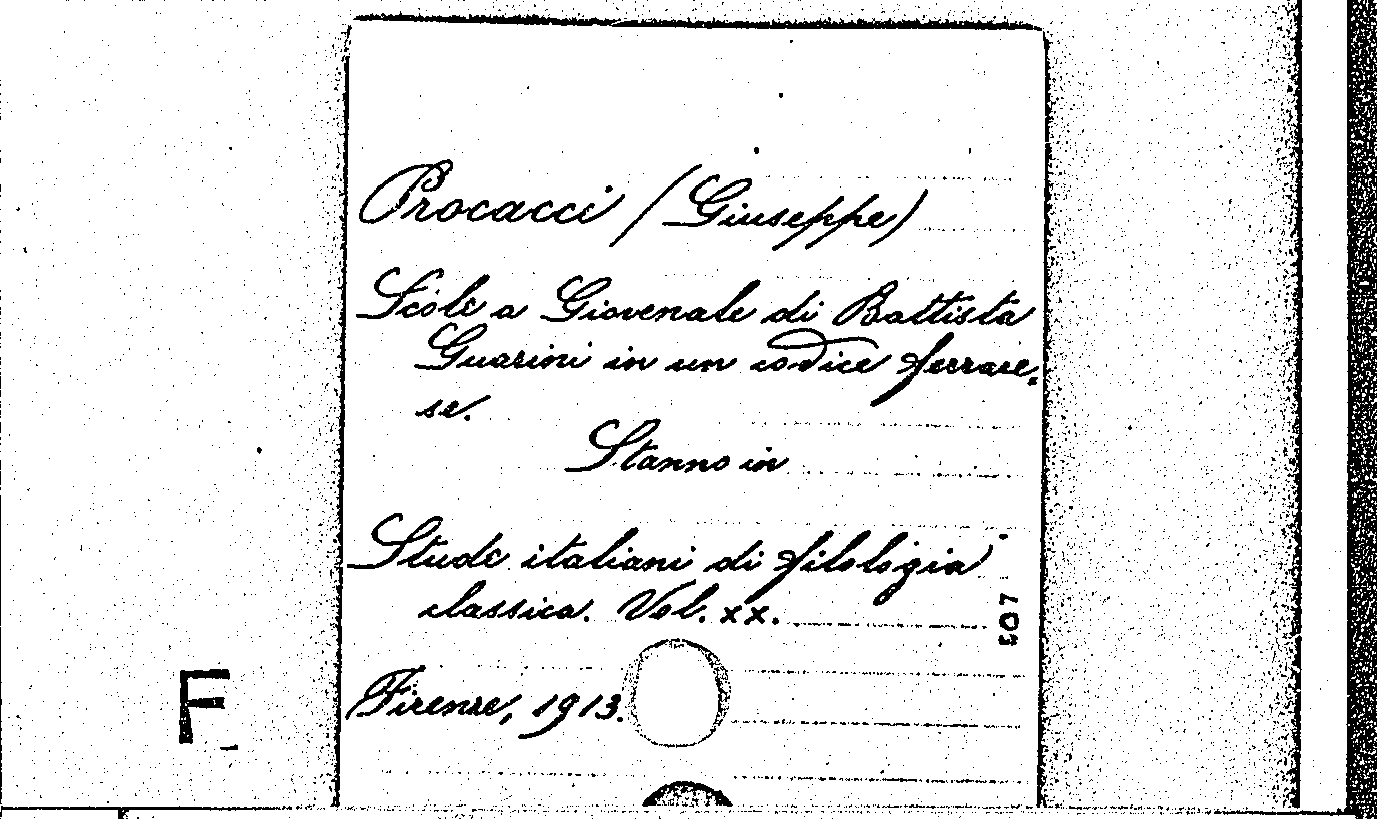 Procacci (Giuseppe)
Scole a Giovenale di Battista
Guarini in un codice ferrare-
se.
Stanno in
Studi italiani di filologia
classica. Vol. XX.
Firenze, 1913.
F